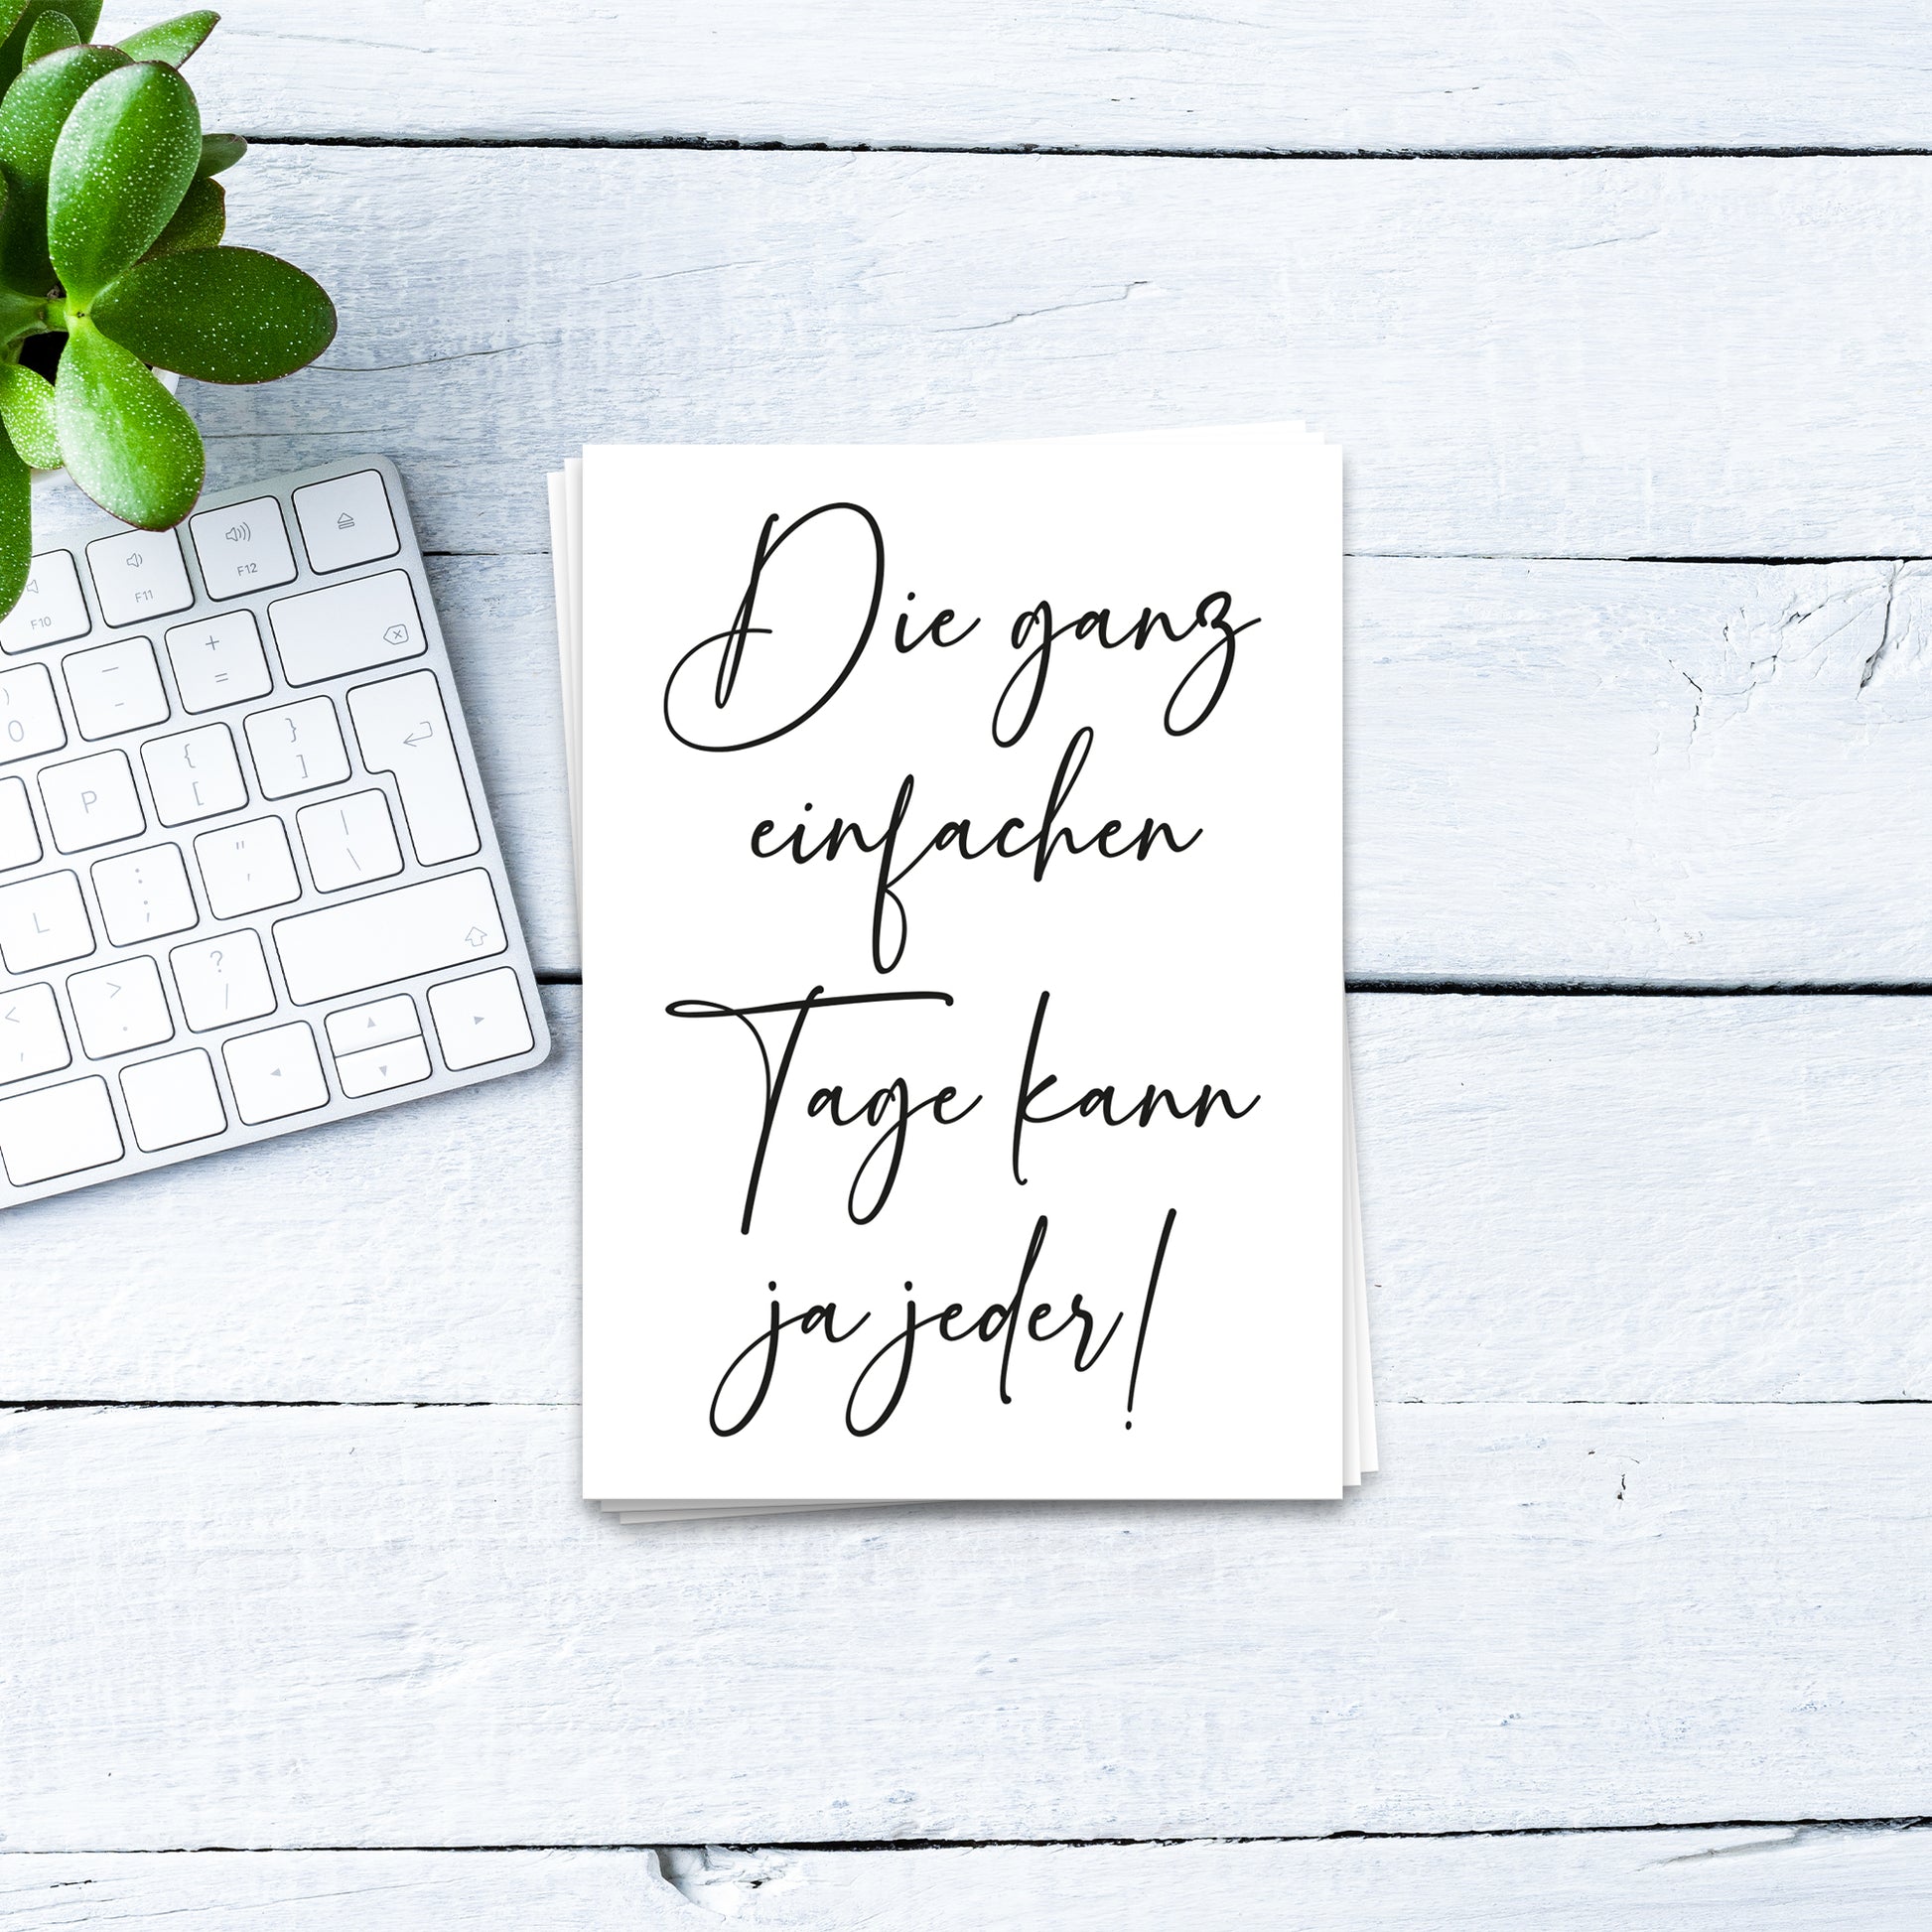 Die ganz
einfachen
Tage kann
ja jeder!
F10
F11
F12
+
=
_
-
)
0
{
[
}
]
P
"
'
|
\
L
:
;
?
/
>
.
<
,